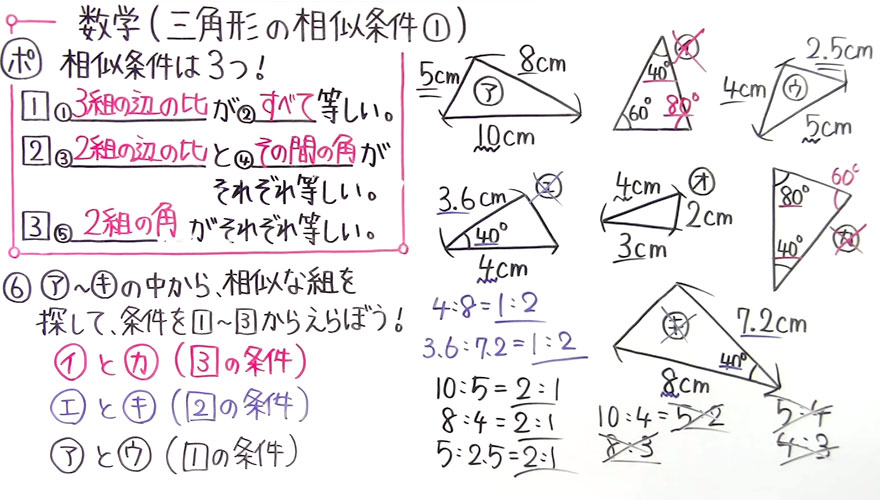 数学(三角形の相似条件①)
ポ 相似条件は3つ!
1 ①3組の辺の比が②すべて等しい。
2 ③2組の辺の比と④その間の角が
それぞれ等しい。
3 ⑤2組の角がそれぞれ等しい。
⑥ ㋐~㋖の中から、相似な組を
探して、条件を1~3からえらぼう!
㋑と㋕(3の条件)
㋓と㋖(2の条件)
㋐と㋒(1の条件)
5cm
8cm
㋐
10cm
㋑
40°
60°
80°
2.5cm
4cm
㋒
5cm
3.6cm
㋓
40°
4cm
4cm
㋔
2cm
3cm
60°
80°
㋕
40°
㋖
7.2cm
40°
8cm
4:8=1:2
3.6:7.2=1:2
10:5=2:1
8:4=2:1
5:2.5=2:1
10:4=5:2
8:3
5:4
4:3